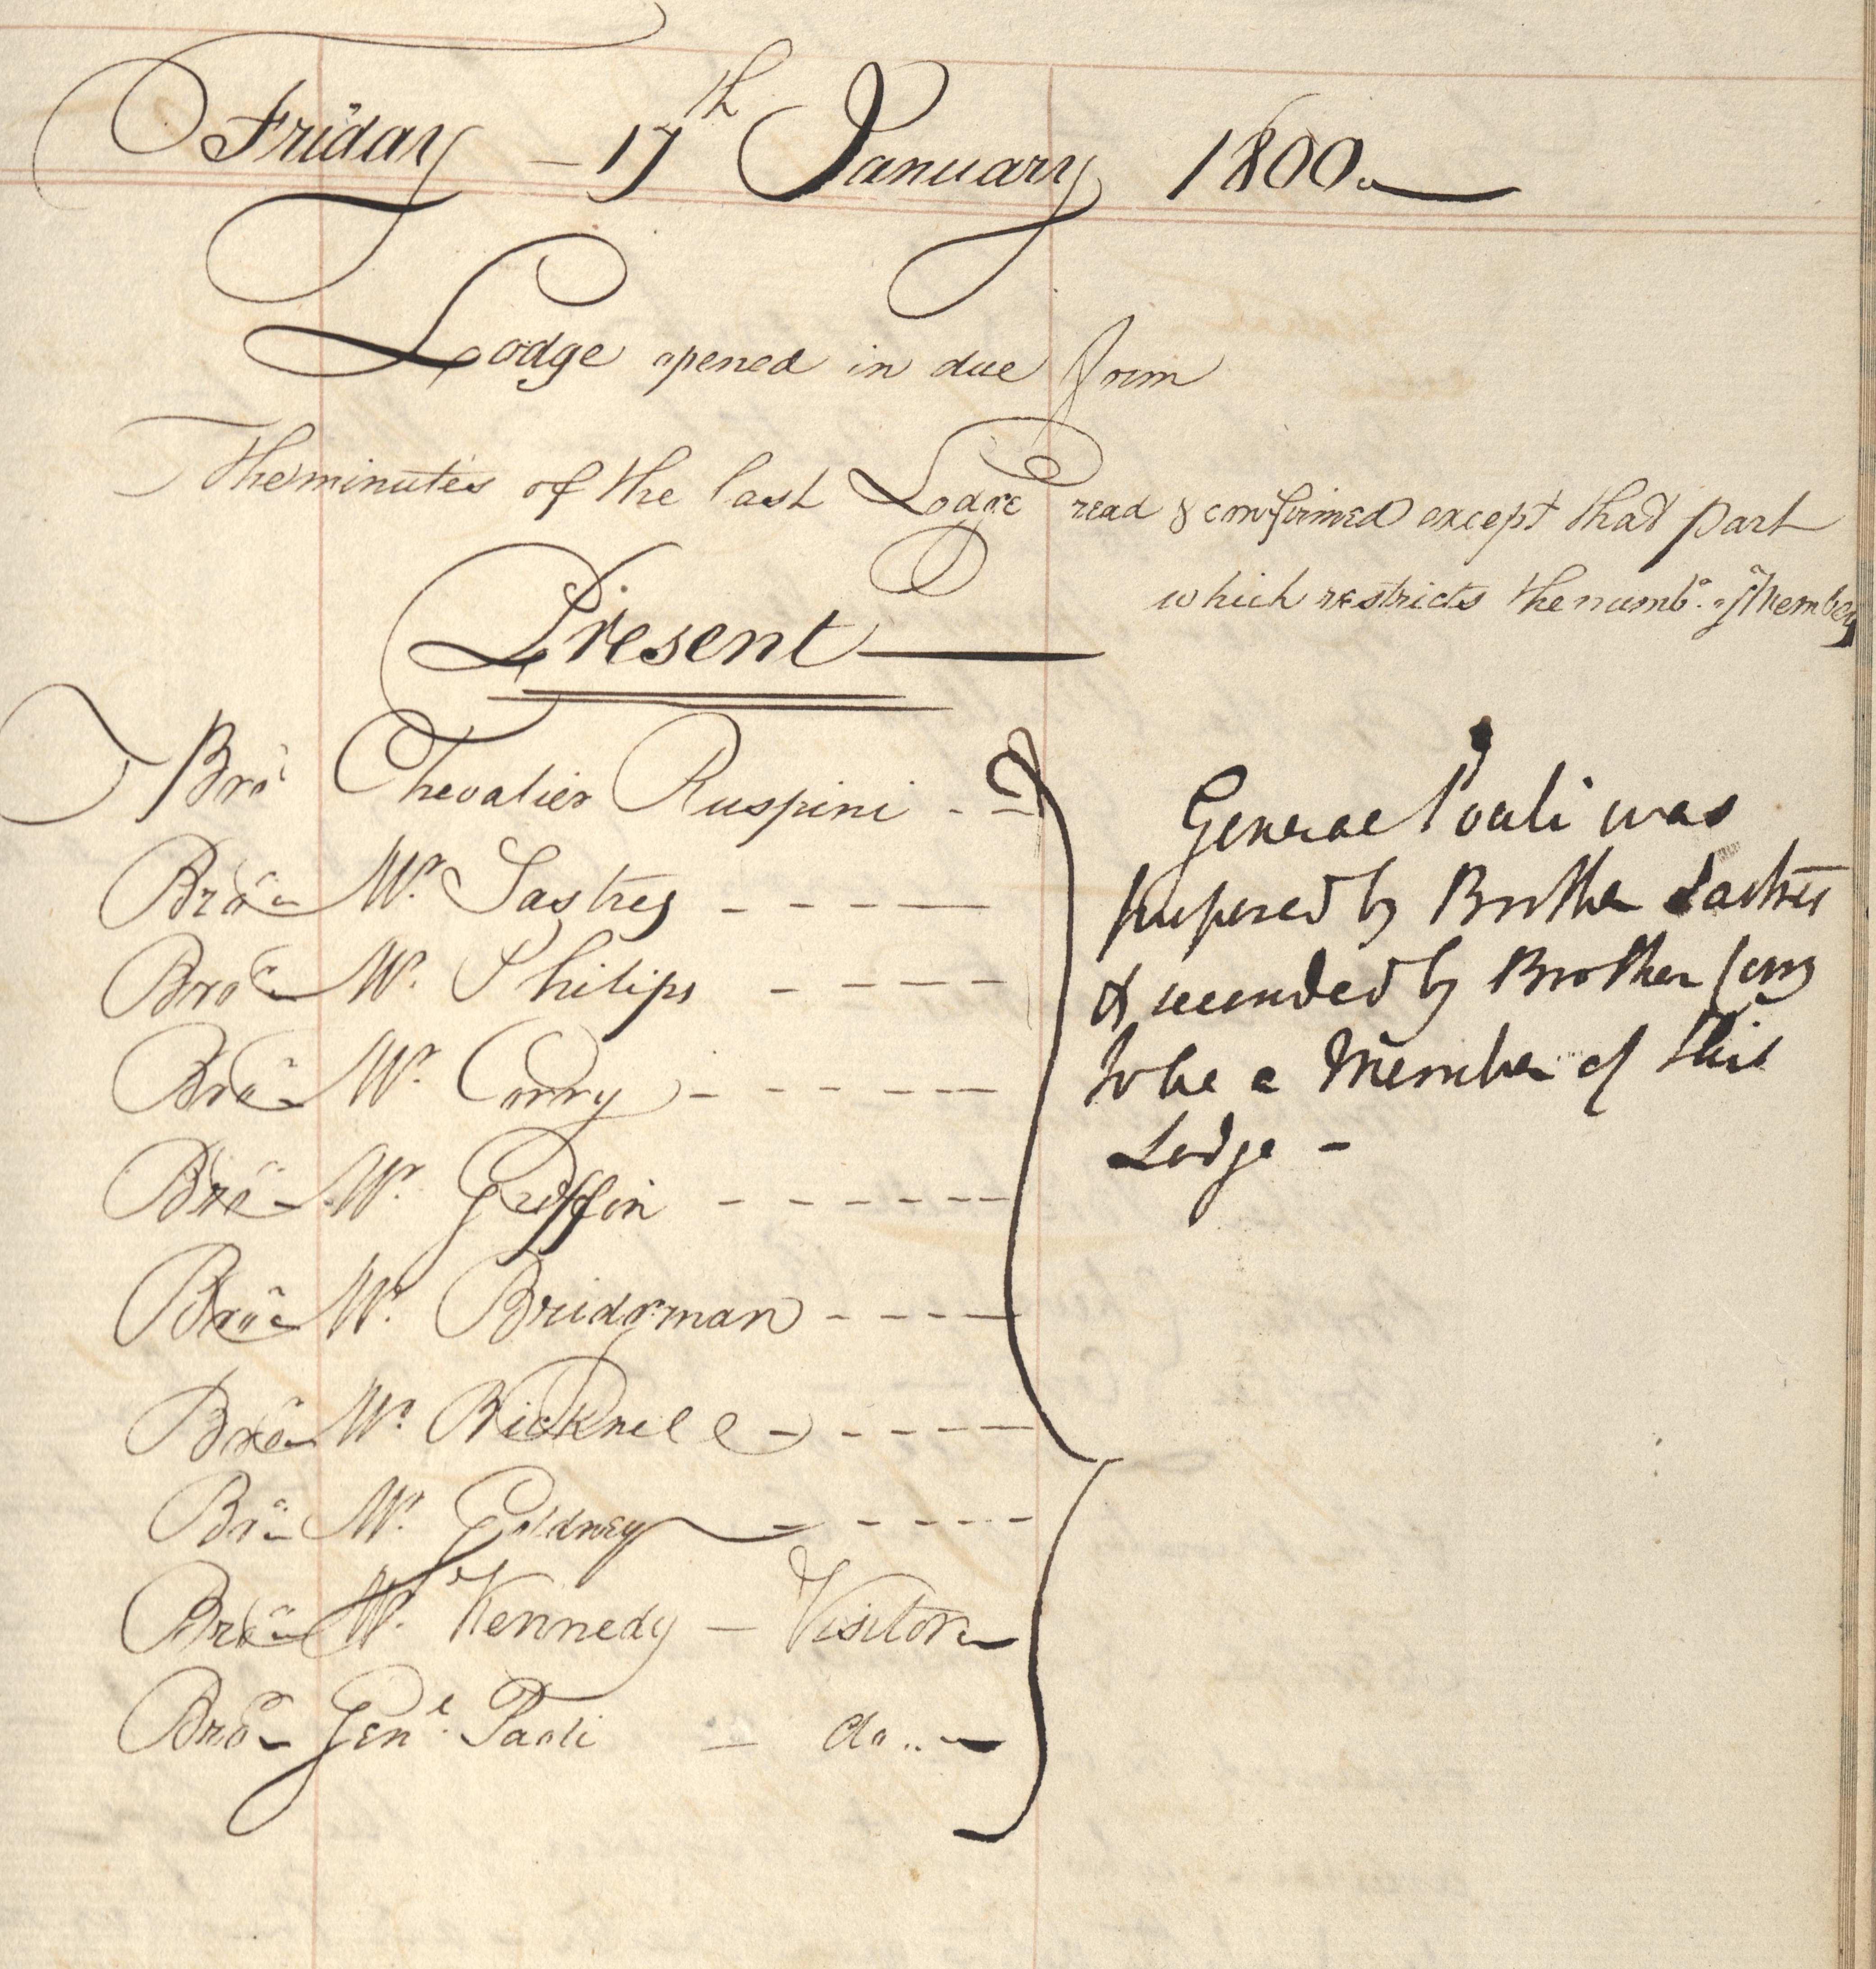 Friday – 17th January 1800
Lodge opened in due form
The minutes of the last Lodge read & confirmed except that part
which restricts the numb.r of Members
Present
Bror Chevalier Ruspini
Bror Mr. Sastres
Bror Mr. Philips
Bror Mr. Corry
Bror Mr. Griffin
Bror Mr. Bridgman
Bror Mr. Bicknell
Bror Mr. Goldney
Bror Mr. Kennedy – Visitor
Bror Genl. Paoli – do
General Paoli was
proposed by Brother Sastres
& seconded by Brother Corry
to be a Member of this
Lodge –